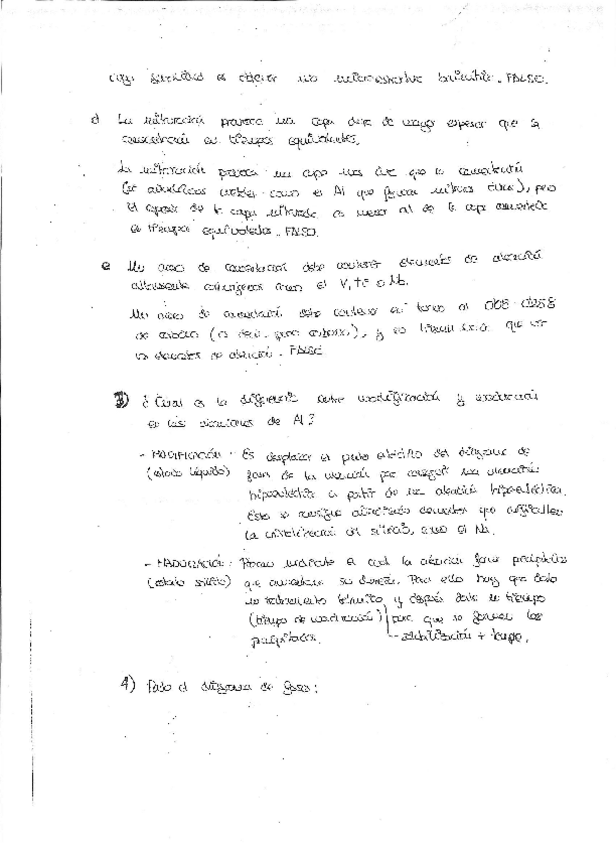 cuya finalidad es obtener una microestructura . FALSO.
d La nitruración provoca una capa dura de mayor espesor que la
cementación en tiempos equivalentes.
La nitruración provoca una capa más dura que la cementación
(se añaden metales como el Al que forman nitruros duros), pero
el espesor de la capa nitrurada es menor al de la capa cementada
en tiempos equivalentes. FALSO.
e Un acero de cementación debe contener elementos de aleación
altamente carburígenos como el V, Ti o Nb.
Un acero de cementación debe contener en torno al
de carbono (es decir, poco carbono), y no que
los elementos de aleación. FALSO
3) ¿Cuál es la diferencia entre modificación y maduración
en las aleaciones de Al?
- MODIFICACIÓN: Es desplazar el punto eutéctico del diagrama de
(estado líquido) fases de la aleación para conseguir una aleación
hipoeutéctica a partir de una aleación hipereutéctica.
Esto se consigue añadiendo elementos que
la cristalización del silicio, como el Na.
- MADURACIÓN: Proceso mediante el cual la aleación forma precipitados
(estado sólido) que aumentan su dureza. Para ello hay que darle
un tratamiento térmico y después darle un tiempo
(tiempo de maduración) para que se formen los
precipitados. solubilización + temple.
4) Dado el diagrama de fases: